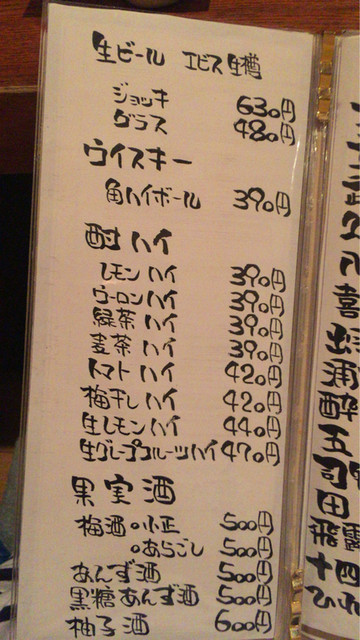 生ビール エビス生樽
ジョッキ 630円
グラス 480円
ウイスキー
角ハイボール 390円
酎ハイ
レモンハイ 390円
ウーロンハイ 390円
緑茶ハイ 390円
麦茶ハイ 390円
トマトハイ 420円
梅干しハイ 420円
生レモンハイ 440円
生グレープフルーツハイ 470円
果実酒
梅酒。小正 500円
。あらごし 500円
あんず酒 500円
黒糖あんず酒 500円
柚子酒 600円